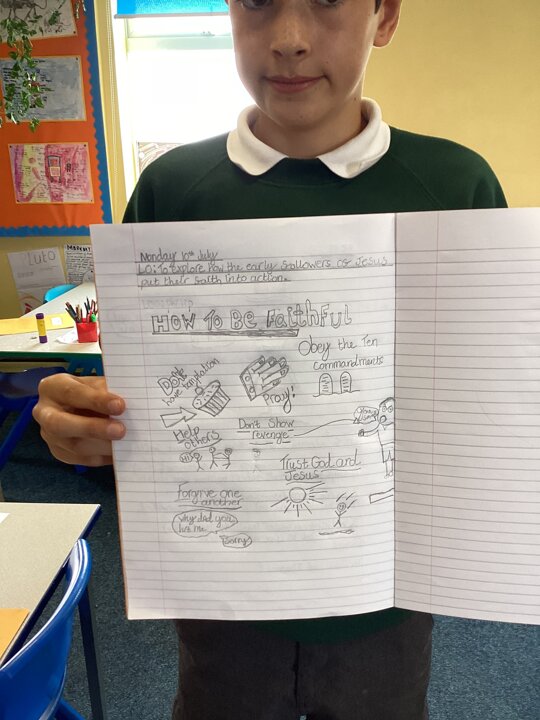 Monday 10th July
LO: To explore how the early followers of Jesus
put their faith into action.
HOW TO BE FaithFul
Obey the Ten
commandments
Don't
have temptation
Pray!
Help
others
Hi
Don't Show
revenge
Trust God and
Jesus
Forgive one
another
Why did you
hit me
Sorry
Luto